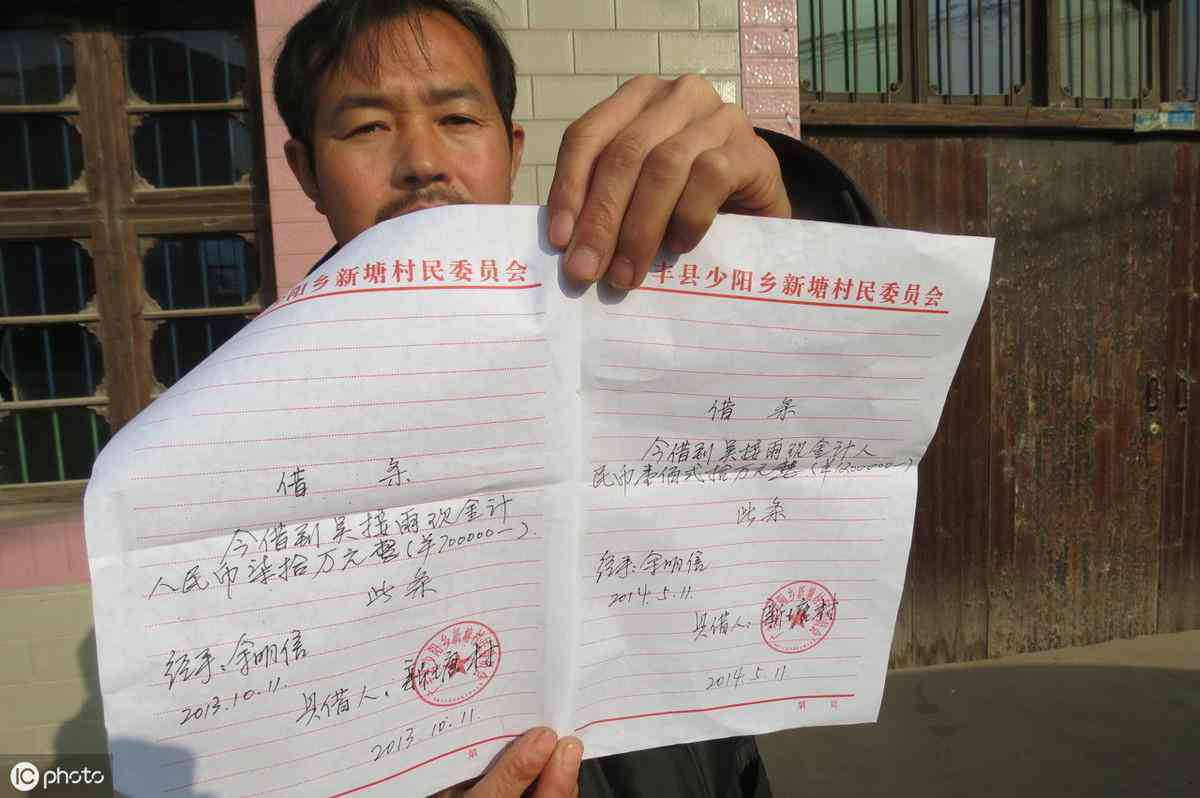 阳乡新塘村民委员会
借 条
今借到吴接雨现金计
人民币柒拾万元整(￥700000-).
此条
经手:余明信
2013.10.11.
具借人:新塘村
2013.10.11.
第
丰县少阳乡新塘村民委员会
借 条
今借到吴接雨现金计人
民币壹佰弍拾万元整(￥1200000-)
此条
经手:余明信
2014.5.11.
具借人:新塘村
2014.5.11
第 页
IC photo